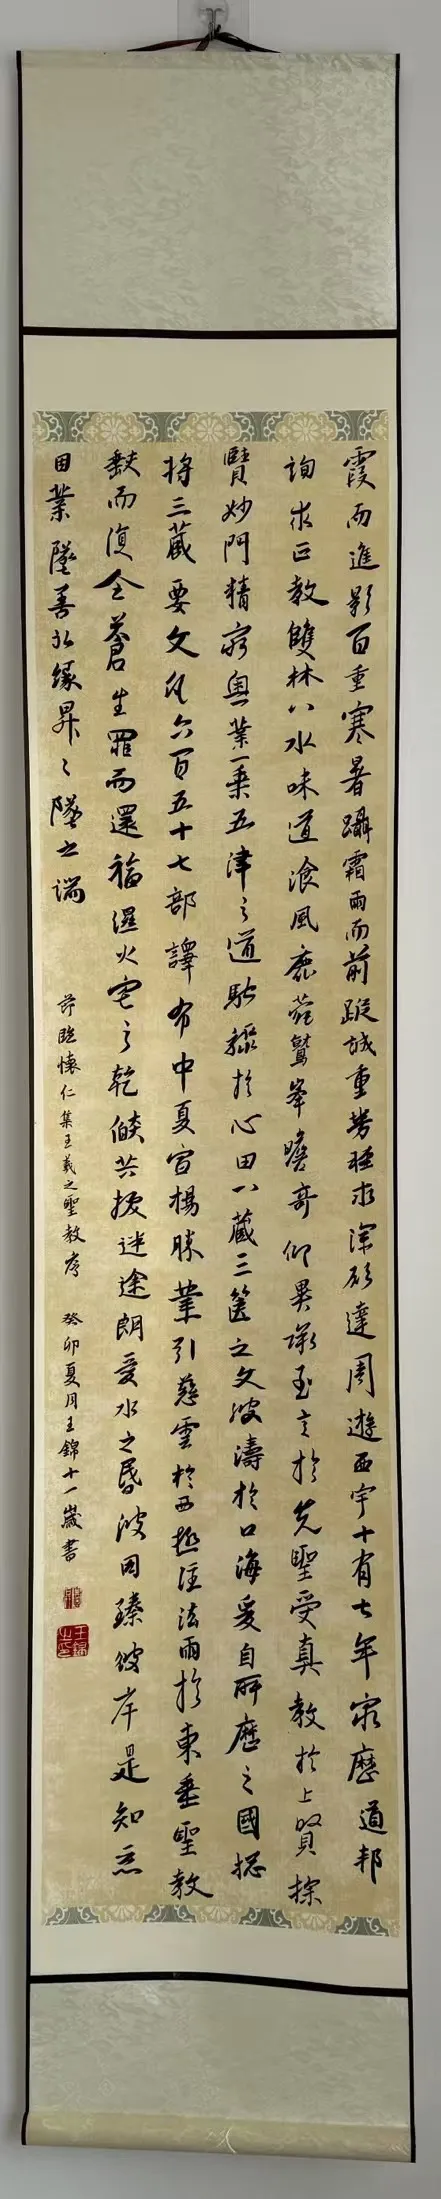 霞而進影百重寒暑躡霜雨而前蹤誠重勞輕求深願達周遊西宇十有七年窮歷道邦
詢求正教雙林八水味道湌風鹿菀鷲峯瞻奇仰異承至言於先聖受真教於上賢探
賾妙門精窮奧業一乘五律之道馳驟於心田八藏三篋之文波濤於口海爰自所歷之國總
將三藏要文凡六百五十七部譯布中夏宣揚勝業引慈雲於西極注法雨於東垂聖教
缺而復全蒼生罪而還福濕火宅之乾燄共拔迷途朗愛水之昏波同臻彼岸是知惡
因業墜善以緣昇々墜之端
節臨懷仁集王羲之聖教序 癸卯夏月王錦十一歲書
王錦之印